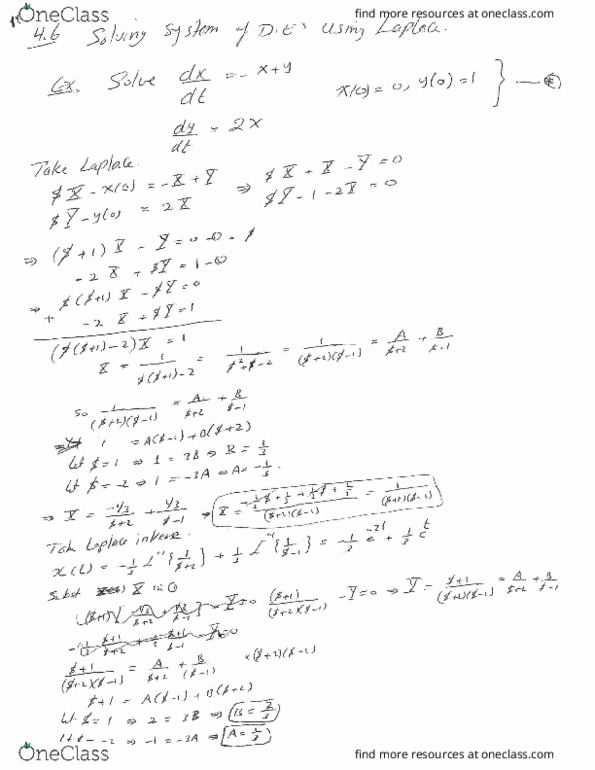 OneClass
find more resources at oneclass.com
4.6 Solving System of D.E's using Laplace.
Ex. Solve dx/dt = -x+y
x(0)=0, y(0)=1 } —(*)
dy/dt = 2x
Take Laplace.
$X - x(0) = -X + Y ⇒ $X + X - Y = 0
$Y - y(0) = 2X $Y - 1 - 2X = 0
⇒ ($+1)X - Y = 0
-2X + $Y = 1
$($+1)X - $Y = 0
+ -2X + $Y = 1
($($+1)-2)X = 1
X = 1/($($+1)-2) = 1/($²+$-2) = 1/(($+2)($-1)) = A/($+2) + B/($-1)
So 1/(($+2)($-1)) = A/($+2) + B/($-1)
1 = A($-1) + B($+2)
Let $=1 ⇒ 1 = 3B ⇒ B = 1/3
Let $=-2 ⇒ 1 = -3A ⇒ A = -1/3.
⇒ X = (-1/3)/($+2) + (1/3)/($-1) ⇒ X = (-1/3$ + 1/3 + 1/3$ + 2/3)/(($+2)($-1)) = 1/(($+2)($-1))
Take Laplace inverse.
x(t) = -1/3 L⁻¹{1/($+2)} + 1/3 L⁻¹{1/($-1)} = -1/3 e^-2t + 1/3 e^t
Subst X in ①
($+1)/(($+2)($-1)) - Y = 0 ⇒ Y = ($+1)/(($+2)($-1)) = A/($+2) + B/($-1)
($+1)/(($+2)($-1)) = A/($+2) + B/($-1) ×($+2)($-1)
$+1 = A($-1) + B($+2)
Let $=1 ⇒ 2 = 3B ⇒ B = 2/3
Let $=-2 ⇒ -1 = -3A ⇒ A = 1/3
OneClass
find more resources at oneclass.com